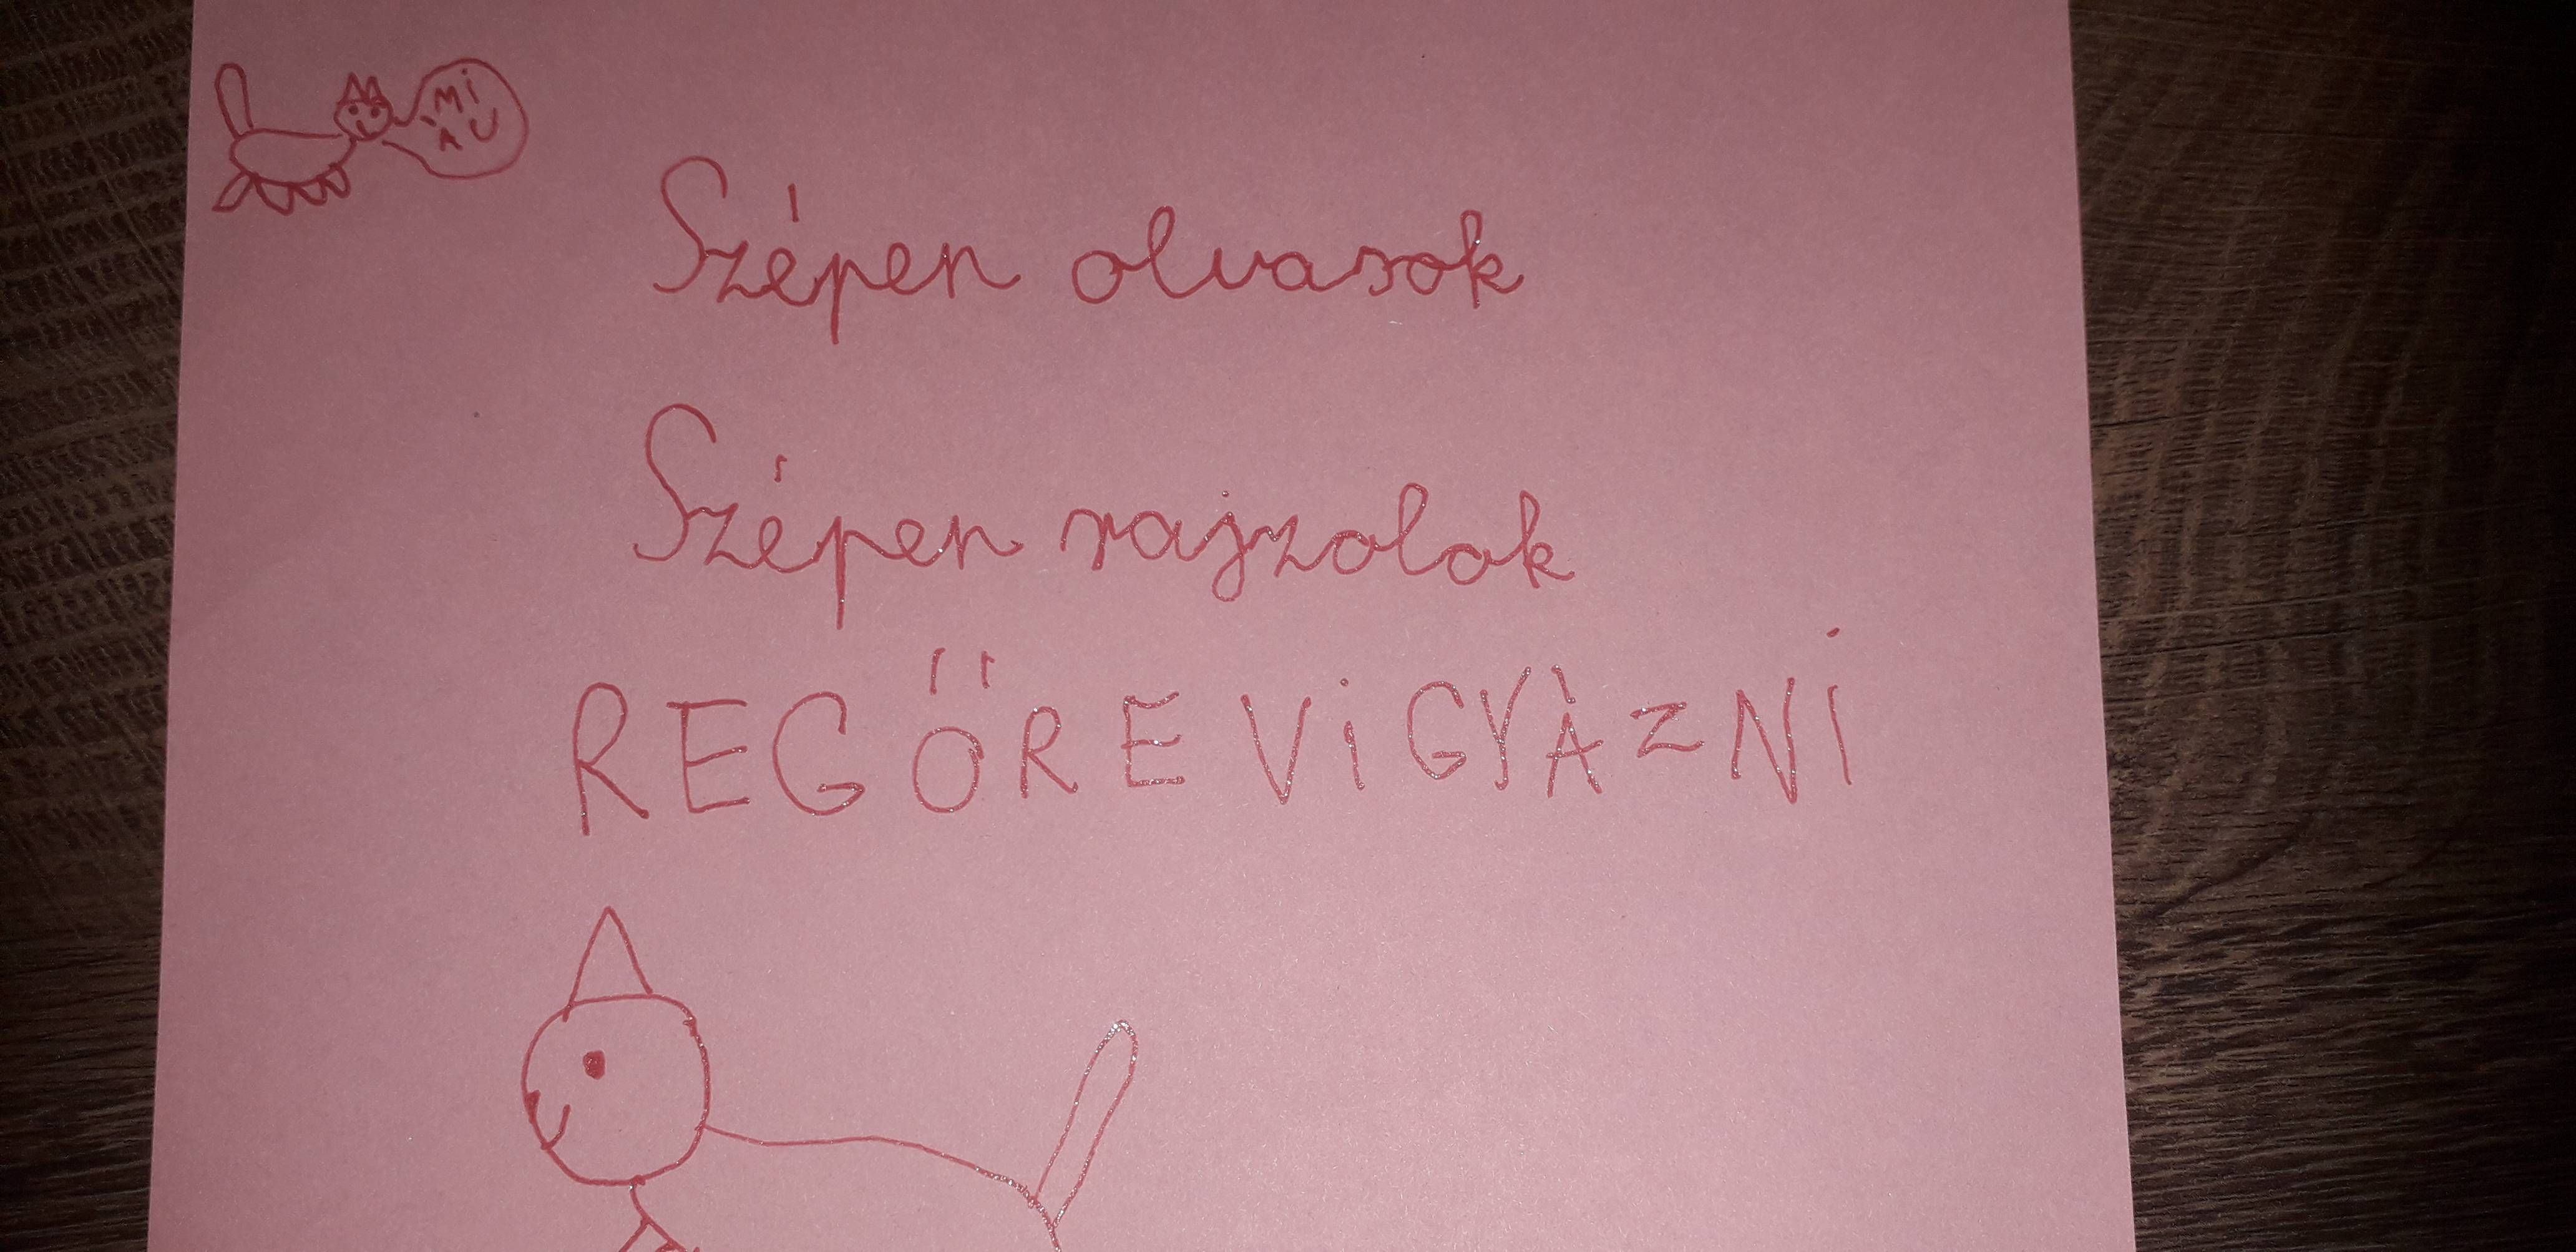 MI
ÀU
Szépen olvasok
Szépen rajzolok
REGŐRE VIGYÀZNI